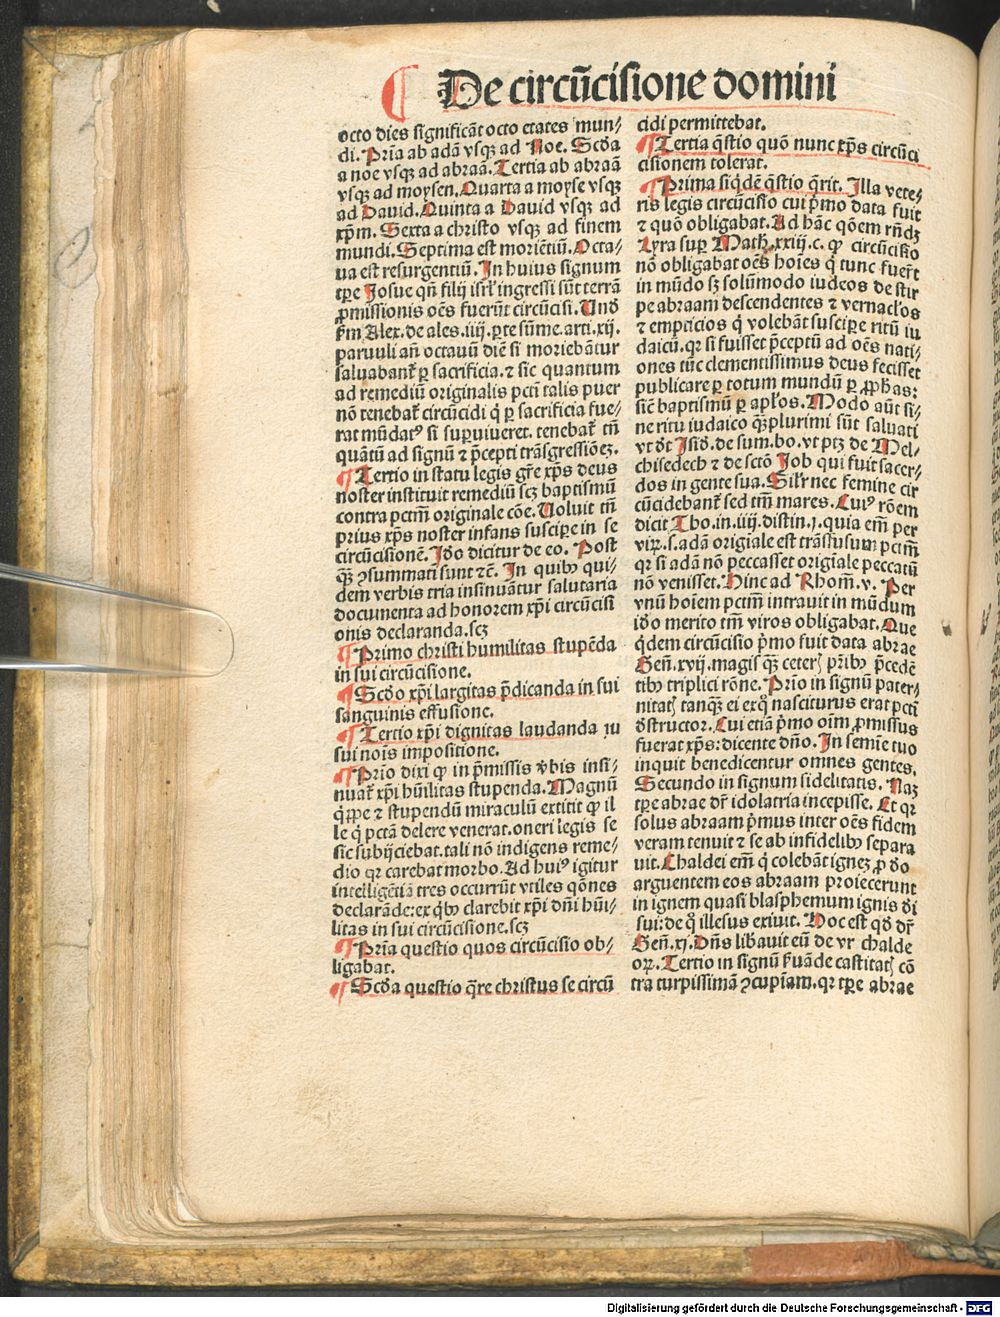 De circūcisione domini
octo dies significāt octo etates mun⸗
di. Prīa ab adā vsqꝫ ad Noe. Scḋa
a noe vsqꝫ ad abraā. Tertia ab abraā
vsqꝫ ad moysen. Quarta a moyse vsqꝫ
ad Dauid. Quinta a Dauid vsqꝫ ad
xp̄m. Sexta a christo vsqꝫ ad finem
mundi. Septima est moriētiū. Octa⸗
ua est resurgentiū. In huius signum
tꝑe Iosue qn̄ filij isrl̓ ingressi sūt terrā
ꝓmissionis oēs fuerūt circūcisi. Vnḋ
ẜm Alex. de ales .iiij. ꝑte sūme. arti. xij.
paruuli an̄ octauū diē si moriebātur
saluabant᷑ ꝑ sacrificia. ⁊ sic quantum
ad remediū originalis pctī talis puer
nō tenebat᷑ circūcidi q̇ ꝑ sacrificia fue⸗
rat mūdatꝰ si suꝑuiueret. tenebat᷑ tn̄
quātū ad signū ⁊ p̄cepti trāsgressiōeꝫ.
¶ Tertio in statu legis gr̄e xp̄s deus
noster instituit remediū scꝫ baptismū
contra pctm̄ originale cōe. Voluit tn̄
prius xp̄s noster infans suscipe in se
circūcisionē. Iḋo dicitur de eo. Post
qꝫ̄ ꝯsummati sunt ⁊c̄. In quibꝰ qui⸗
dem verbis tria insinuātur salutaria
documenta ad honorem xp̄i circūcisi
onis declaranda. scꝫ
¶ Primo christi humilitas stupēda
in sui circūcisione.
¶ Scḋo xp̄i largitas p̄dicanda in sui
sanguinis effusione.
¶ Tertio xp̄i dignitas laudanda iu
sui nois̄ impositione.
¶ Prīo dixi ꝙ in p̄missis v̓bis insi⸗
nuat᷑ xp̄i hūilitas stupenda. Magnū
q̇ꝑpe ⁊ stupendū miraculū extitit ꝙ il
le q̇ pctā delere venerat. oneri legis se
sic subijciebat. tali nō indigens reme⸗
dio qꝛ carebat morbo. Ad huiꝰ igitur
intelligētiā tres occurrūt vtiles qōnes
declarāde: ex qḃꝫ clarebit xp̄i dn̄i hūi⸗
litas in sui circūcisione. scꝫ
¶ Prīa questio quos circūcisio ob⸗
ligabat.
¶ Scḋa questio q̄re christus se circū
cidi permittebat.
¶ Tertia q̄stio quō nunc xp̄s circūci
cisionem tolerat.
¶ Prima siq̇dē q̄stio q̄rit. Illa vete⸗
ris legis circūcisio cui p̓mo data fuit
⁊ quō obligabat. Ad hāc qōem rn̄dꝫ
Lyra suꝑ Math. xxiij. c. ꝙ circūcisio
nō obligabat oēs hoīes q̇ tunc fuer̄t
in mūdo sꝫ solūmodo iudeos de stir
pe abraam descendentes ⁊ vernacl̓os
⁊ empticios q̇ volebāt suscipe ritū iu
daicū. qꝛ si fuisset p̄ceptū ad oēs nati⸗
ones tūc clementissimus deus fecisset
publicare ꝑ totum mundū ꝑ ꝓphas:
sic̄ baptismū ꝑ apl̓os. Modo aūt si⸗
ne ritu iudaico qꝫ̄plurimi sūt saluati
vt ḋt Isiḋ. de sum. bo. vt ptꝫ de Mel⸗
chisedech ⁊ de sctō Iob qui fuit sacer⸗
dos in gente sua. Silr̓ nec femine cir
cūcidebant᷑ sed tm̄ mares. Cuiꝰ rōem
dicit Tho. in .iiij. distin. j. quia em̄ per
virꝫ. s. adā origiale est trāsfusum pctm̄
qꝛ si adā nō peccasset origiale peccatū
nō venisset. Hinc ad Rhom̄. v. Per
vnū hoīem pctm̄ intrauit in mūdum
iḋo merito tm̄ viros obligabat. Que
q̇dem circūcisio p̓mo fuit data abrae
Gen̄. xvij. magis qꝫ̄ ceteꝝ pr̄ibꝰ p̄cedē
tibꝰ triplici rōne. Prīo in signū pater⸗
nitatꝭ tanqꝫ ei exq̊ nasciturus erat pctī
ḋstructor. Cui etiā p̓mo oīm ꝓmissus
fuerat xp̄s: dicente dn̄o. In semīe tuo
inquit benedicentur omnes gentes.
Secundo in signum fidelitatis. Naꝫ
tꝑe abrae dr̄ idolatria incepisse. Et qꝛ
solus abraam p̓mus inter oēs fidem
veram tenuit ⁊ se ab infidelibꝰ separa
uit. Chaldei em̄ q̇ colebāt igneꝫ ꝓ ḋo
arguentem eos abraam proiecerunt
in ignem quasi blasphemum ignis ḋi
sui: de q̊ illesus exiuit. Hoc est qḋ dr̄
Gen̄. xj. Dn̄s lib̓auit eū de vr chalde
oꝝ. Tertio in signū ẜuāde castitatꝭ cō
tra turpissimā ꝯcupiam. qꝛ tꝑe abrae
Digitalisierung gefördert durch die Deutsche Forschungsgemeinschaft - DFG